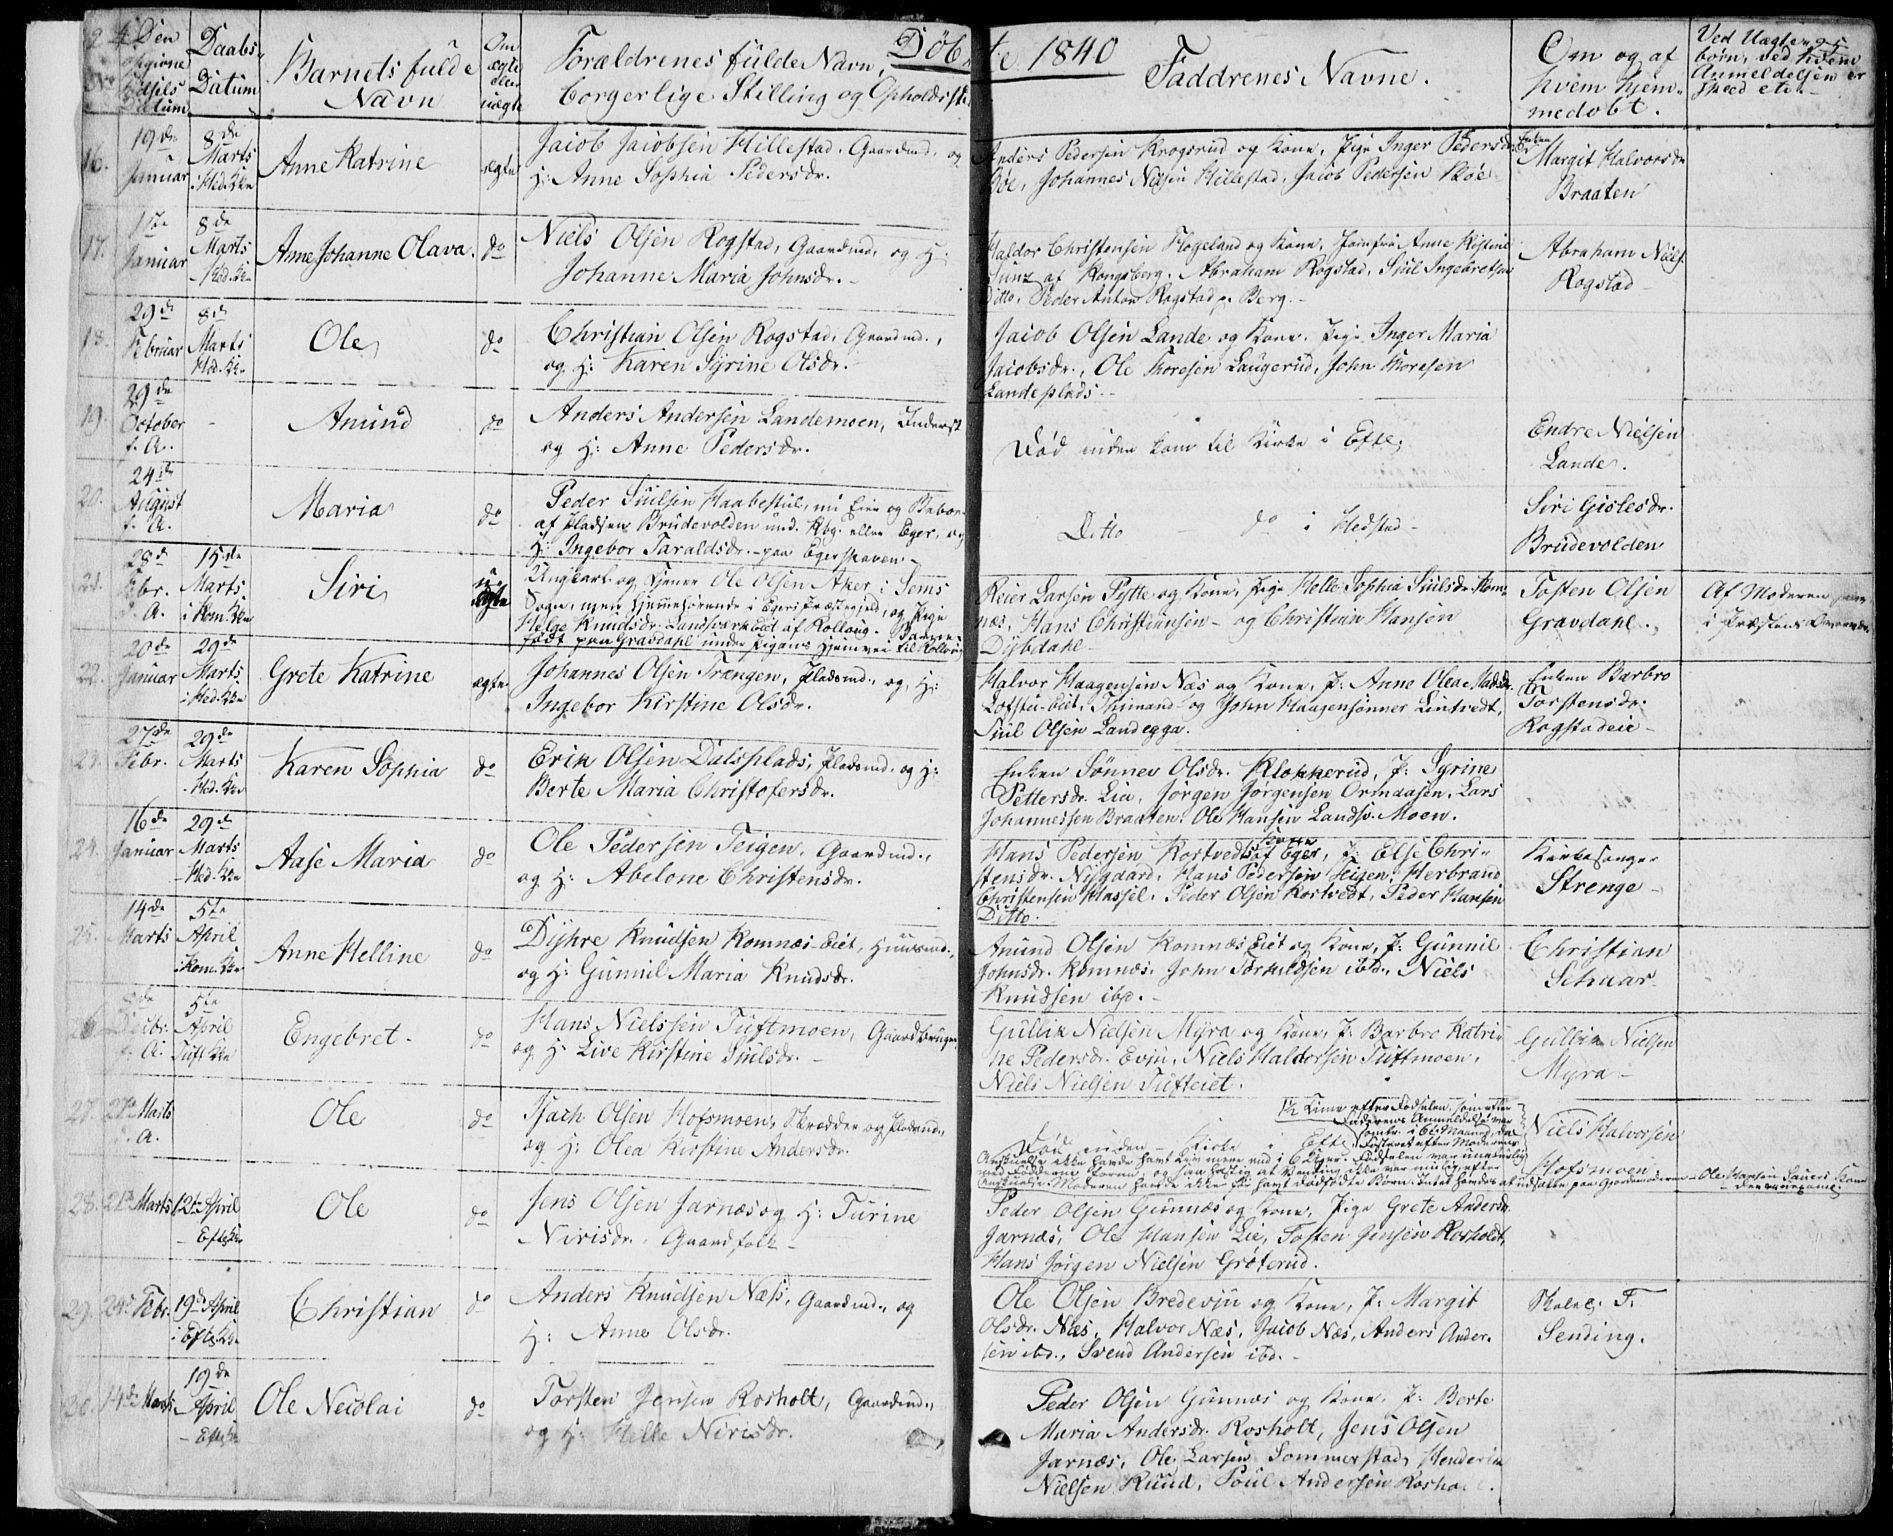 Döbte 1840
24
Den opgivne Fødsels Datum
Daabs-Datum
Barnets fulde Navn
Om ægte eller uægte
Forældrenes fulde Navn,
borgerlige Stilling og Opholdsst
Faddrenes Navne.
Om og af
hvem hjem-
medöbt.
25
Ved Uægte
börn, ved hvem
Anmeldelsen er
skeed etc.
16.
19de Januar
8de Marts i Hed. Kke
Anne Katrine
ægte
Jacob Jacobsen Hillestad, Gaardmd. og
H: Anne Sophia Pedersdr.
Anders Pedersen Krogsrud og Kone, Pige Inger Pedersdr.
Böe, Johannes Nilsen Hillestad, Jacob Pedersen Böe
Enken
Margit Halvorsdr.
Braaten
17.
17de Januar
8de Marts Hed. Kke
Anne Johanne Olava.
do
Niels Olsen Rogstad, Gaardmd. og H:
Johanne Maria Johnsdr.
Haldor Christensen Flogeland og Kone, Jomfru Anne Kistine
Lunz af Kongsberg. Abraham Rogstad, Siul Ingebretsen
Ditto, Peder Anton Rogstad p. Berg.
Abraham Niels.
Rogstad
18.
29de Februar
8de Marts Hed. Kke
Ole
do
Christian Olsen Rogstad, Gaardmd.,
og H: Karen Syrine Olsdr.
Jacob Olsen Lande og Kone, Pige Inger Maria
Jacobsdr., Ole Thoresen Laugerud, John Thoresen
Landeplads.
19.
29de October f. A.
Amund
do
Anders Andersen Landemoen, Inderst
og H: Anne Pedersdr.
Död inden kom til Kirke i Efte,
Endre Nielsen
Lande.
20.
24de August f. A.
Maria
do
Peder Siulsen Haabestul, nu Eier og Beboer
af Pladsen Brudevolden und. Kbg. eller Eger, og
H: Ingebor Taraldsdr. paa Egerskoven
Ditto do i Hedstad
Siri Gislesdr.
Brudevolden
21.
28de Febr. d. A.
15de Marts i Kom. Kke
Siri
uægte
Ungkarl og tjener Ole Olsen Aker i Sems
Sogn, men hjemmehörende i Egers Præstegjeld, og Pige
Helge Knudsdr. Landsværk Eiet af Rollaug. Barnet
födt paa Gravdahl under Pigens hjemvei til Rollaug
Reier Larsen Pytte og Kone, Pige Helle Sophia Siulsdr. Kom-
næs, Hans Christiansen og Christian Hansen
Dybdahl
Tosten Olsen
Gravdahl.
Af Moderen selv
i Præstens Overværelse
22.
20de Januar
29de Marts i Hed. Kke
Grete Katrine
ægte
Johannes Olsen Trangen, Pladsmd., og H:
Ingebor Kirstine Olsdr.
Halvor Haagensen Næs og Kone, P: Anne Olea Madsdr.
Loftsu-Eiet, Thimand og John Haagensönner Lintvedt,
Siul Olsen Landegga.
Enken Barbro
Torstensdr.
Rogstadeie
23.
27de Febr.
29de Marts Hed. Kke
Karen Sophia
do
Erik Olsen Dalsplads, Pladsmd. og H:
Berte Maria Christofersdr.
Enken Sönnev Olsdr. Klokkerud, P: Syrine
Pettersdr. Lia, Jörgen Jörgensen Ormaasen, Lars
Johannessen Braaten. Ole Hansen Landsv. Moen.
24.
16de Januar
29de Marts Hed. Kke
Aase Maria
do
Ole Pedersen Teigen, Gaardmd.,
og H: Abelone Christensdr.
Hans Pedersen Kortvedt af Eger, Kone P: Else Chri-
stensdr. Nygaard, Hans Pedersen Teigen, Herbrand
Christensen Hassel. Peder Olsen Kortvedt, Peder Hansen
Ditto.
Kirkesanger
Strenge
25.
14de Marts
5te April i Kom. Kke
Anne Helline
do
Dyhre Knudsen Komnæs-Eiet, Huusmd.,
og H: Gunnil Maria Knudsdr.
Amund Olsen Komnæs Eiet og Kone, P: Gunnil
Johnsdr. Komnæs. John Torkildsen ibd., Niels
Knudsen ibd.
Christian
Schuar
26.
8de Decbr. f. A.
5te April Tuft Kke
Engebret.
do
Hans Nielssen Tuftmoen, Gaardbruger
og H: Live Kirstine Siulsdr.
Gullik Nielsen Myra og Kone, P: Barbro Katri-
ne Pedersdr. Evju, Niels Haldorsen Tuftmoen,
Niels Nielsen Tufteiet.
Gullik Nielsen
Myra
27.
27de Marts d. A.
Ole
do
Isach Olsen Hofsmoen, Skrædder og Pladsmd.,
og H: Olea Kirstine Andersdr.
Död inden Kirke i Efte,
1½ Time efter Födselen, som efter
Faderens Anmeldelse var
omtr. i 6te Maaned, da
Fosteret efter Moderens
Anskuelse ikke havde havt Liv mere end i 6 Uger. Födselen var unaturlig
med Födderne foran, og saa hastig at Vending ikke var mulig efter
Anskuelse. Moderen havde ikke för havt dödfödte Börn.
Niels Halvorsen
Hofsmoen
Ole Hansen Kone
28.
21de Marts
12te April Efte Kke
Ole
do
Jens Olsen Jarnæs og H: Turine
Nirisdr. Gaardfolk
Peder Olsen Gunnæs og Kone, Pige Grete Andersdr.
Jarnæs, Ole Hansen Lie, Tosten Jensen Rosholdt,
Hans Jörgen Nielsen Gröterud.
29.
24de Febr.
19de April i Efte Kke
Christian
do
Anders Knudsen Næss, Gaardmd., og
H: Anne Olsdr.
Ole Olsen Bredevju og Kone, P: Margit
Olsdr. Næs, Halvor Næs, Jacob Næs, Anders Ander-
sen ibd., Svend Andersen ibd.
Skolel. T.
Sending.
30.
14de Marts
19de April Efte Kke
Ole Neiolai
do
Torsten Jensen Rosholt, Gaardmd.,
og H: Helle Nirisdr.
Peder Olsen Gunnæs og Kone, P: Berte
Maria Andersdr. Rosholt, Jens Olsen
Jarnæs, Ole Larsen Sommerstad, Henderik
Nielsen Ruud, Poul Andersen Rosholt.